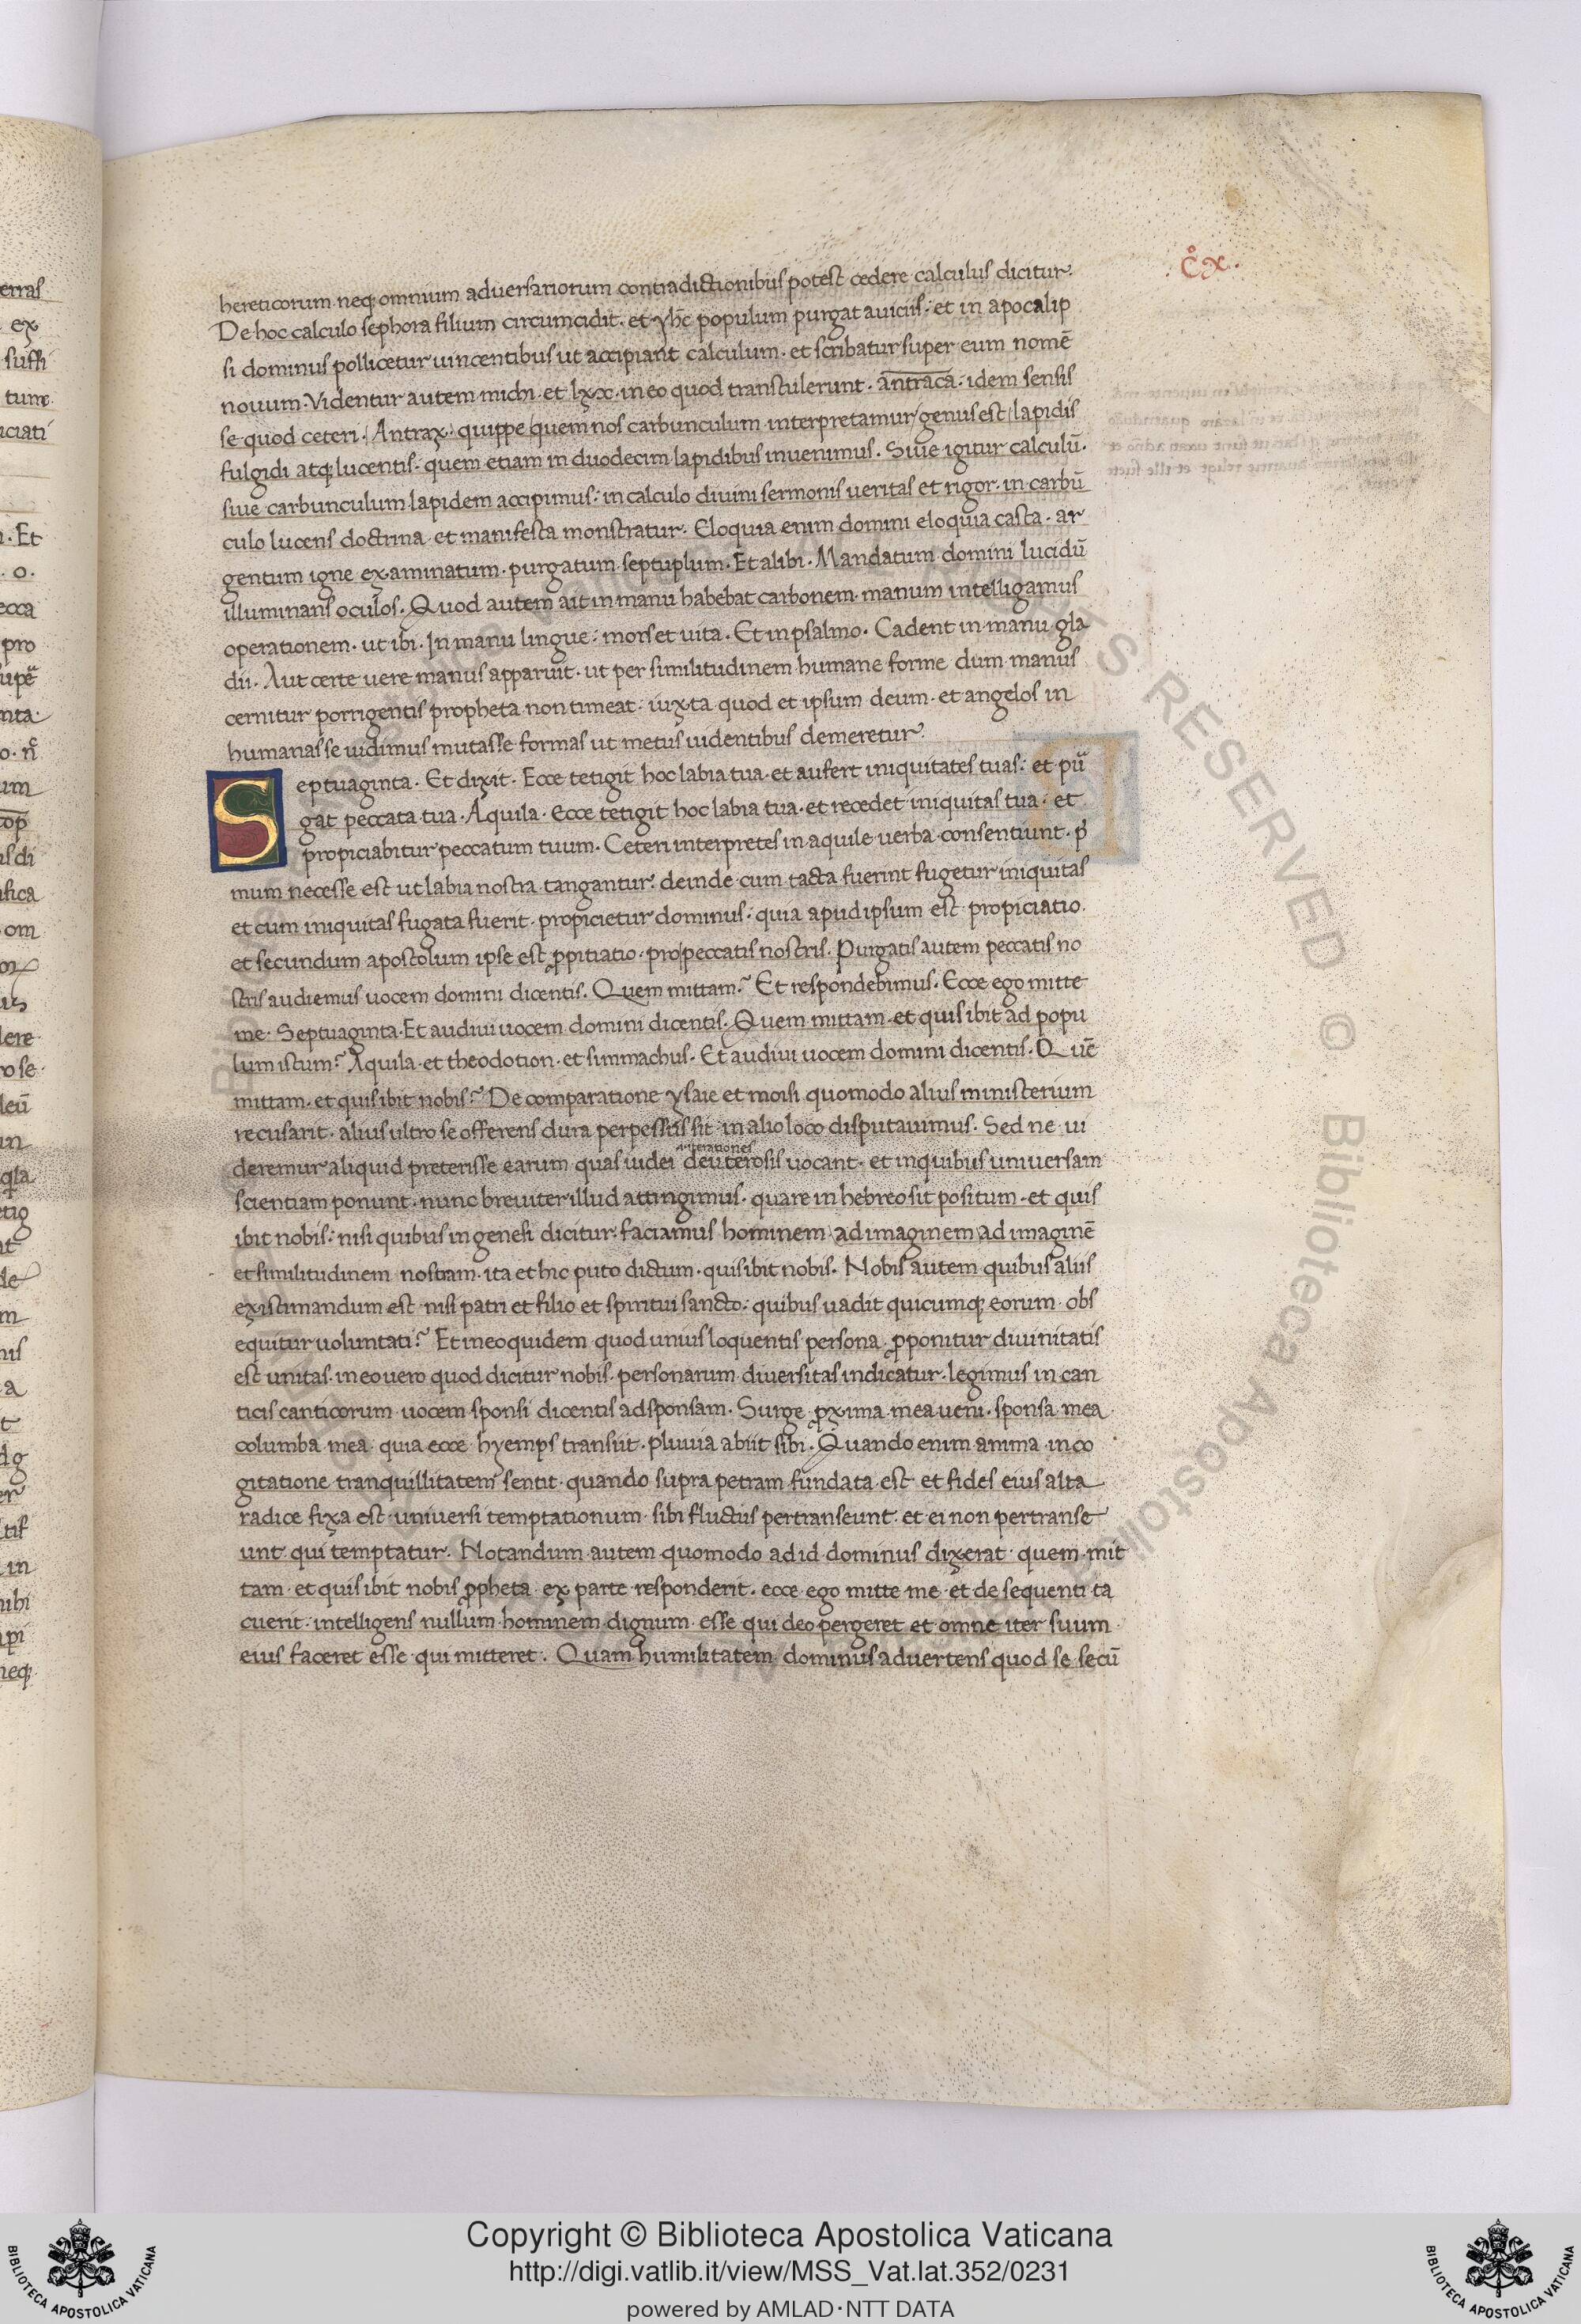 .C̊x.
hereticorum neq; omnium adversariorum contradictionibus potest cedere calculus dicitur.
De hoc calculo sephora filium circumcidit. et yhc̄ populum purgat a viciis: et in apocalip
si dominus pollicetur vincentibus ut accipiant calculum. et scribatur super eum nomē
novum. Videntur autem michi. et lxx. in eo quod transtulerunt. antraca: idem sensis
se quod ceteri. Antrax. quippe quem nos carbunculum interpretamur genus est lapidis
fulgidi atq; lucentis: quem etiam in duodecim lapidibus invenimus. Sive igitur calculū.
sive carbunculum lapidem accipimus: in calculo divini sermonis veritas et rigor. in carbū
culo lucens doctrina et manifesta monstratur. Eloquia enim domini eloquia casta. ar
gentum igne examinatum. purgatum septuplum. Et alibi. Mandatum domini lucidū
illuminans oculos. Quod autem ait in manu habebat carbonem. manum intelligamus
operationem. ut ibi. In manu lingue: mors et vita. Et in psalmo. Cadent in manu gla
dii. Aut certe vere manus apparuit. ut per similitudinem humane forme dum manus
cernitur porrigentis propheta non timeat: iuxta quod et ipsum deum. et angelos in
humanas se vidimus mutasse formas ut metus videntibus demeretur.
Septuaginta. Et dixit. Ecce tetigit hoc labia tua. et aufert iniquitates tuas: et pu
gat peccata tua. Aquila. Ecce tetigit hoc labia tua. et recedet iniquitas tua: et
propiciabitur peccatum tuum. Ceteri interpretes in aquile verba consentiunt. p
mum necesse est ut labia nostra tangantur. deinde cum tacta fuerint fugetur iniquitas
et cum iniquitas fugata fuerit. propicietur dominus: quia apud ipsum est propiciatio.
et secundum apostolum ipse est ꝓpitiatio. pro peccatis nostris. Purgatis autem peccatis no
stris audiemus vocem domini dicentis. Quem mittam? Et respondebimus. Ecce ego mitte
me. Septuaginta. Et audivi vocem domini dicentis. Quem mittam et quis ibit ad popu
lum istum? Aquila. et theodotion. et simmachus. Et audivi vocem domini dicentis. Quē
mittam. et quis ibit nobis? De comparatione ysaie et moisi quomodo alius ministerium
recusarit. alius ultro se offerens dura perpessus sit: in alio loco disputavimus. Sed ne vi
deremur aliquid preterisse earum quas iudei deuterosis vocant. et in quibus universam
scientiam ponunt. nunc breviter illud attingimus. quare in hebreo sit positum. et quis
ibit nobis: nisi quibus in genesi dicitur. faciamus hominem ad imaginem ad imaginē
et similitudinem nostram. ita et hic puto dictum. quis ibit nobis. Nobis autem quibus aliis
existimandum est nisi patri et filio et spiritui sancto: quibus vadit quicumq; eorum obs
equitur voluntati? Et in eo quidem quod unius loquentis persona ꝓponitur divinitatis
est unitas. in eo vero quod dicitur nobis. personarum diversitas indicatur. legimus in can
ticis canticorum vocem sponsi dicentis ad sponsam. Surge ꝓxima mea veni. sponsa mea
columba mea. quia ecce hyemps transiit. pluvia abiit sibi. Quando enim anima in co
gitatione tranquillitatem sentit. quando supra petram fundata est et fides eius alta
radice fixa est. universi temptationum. sibi fluctus pertranseunt. et ei non pertranse
unt qui temptatur. Notandum autem quomodo ad id dominus dixerat quem mit
tam et quis ibit nobis ꝓpheta ex parte responderit. ecce ego mitte me. et de sequenti ta
cuerit: intelligens nullum hominem dignum esse qui deo pergeret et omne iter suum
eius faceret esse qui mitteret. Quam humilitatem dominus advertens quod se secū
Copyright © Biblioteca Apostolica Vaticana
http://digi.vatlib.it/view/MSS_Vat.lat.352/0231
powered by AMLAD·NTT DATA